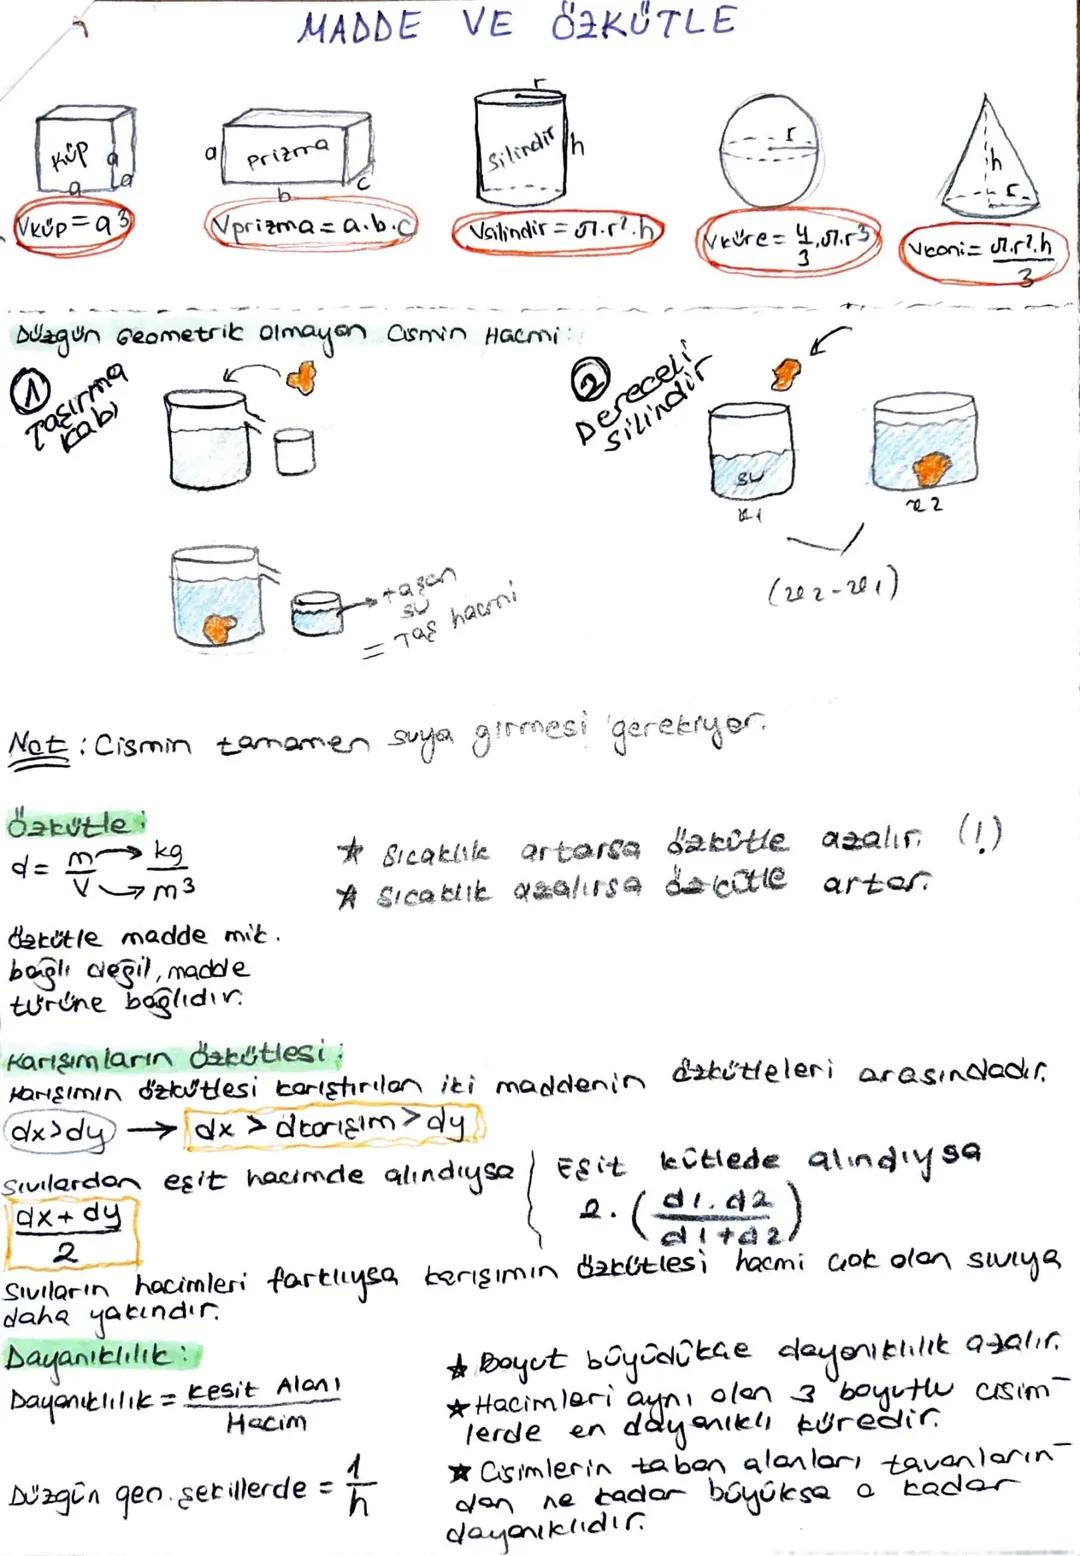 MADDE VE ÖZKÜTLE
küp
a
a
a
prizma
a
b
c
silindir
r
h
r
h
r
Vküp = a³
Vprizma = a.b.c
Vsilindir = π.r².h
Vküre = 4/3.π.r³
Vkoni = π.r².h/3
Düzgün Geometrik Olmayan Cismin Hacmi:
① Taşırma kabı
② Dereceli silindir
su
taşan
su
= Taş hacmi
Not: Cismin tamamen suya girmesi gerekiyor.
Özkütle:
d = m/V → kg/m³
★ Sıcaklık artarsa özkütle azalır. (!)
★ Sıcaklık azalırsa özkütle artar.
özkütle madde mik.
bağlı değil, madde
türüne bağlıdır.
Karışımların özkütlesi:
Karışımın özkütlesi karıştırılan iki maddenin özkütleleri arasındadır.
dx>dy → dx > dkarışım > dy
Sıvılardan eşit hacimde alındıysa
dx + dy / 2
Eşit kütlede alındıysa
2. (d1.d2 / d1+d2)
Sıvıların hacimleri farklıysa karışımın özkütlesi hacmi çok olan sıvıya
daha yakındır.
Dayanıklılık:
Dayanıklılık = Kesit Alanı / Hacim
Düzgün geo. şekillerde = 1/h
★ Boyut büyüdükçe dayanıklılık azalır.
★ Hacimleri aynı olan 3 boyutlu cisim-
lerde en dayanıklı küredir.
★ Cisimlerin taban alanları tavanların-
dan ne kadar büyükse o kadar
dayanıklıdır.